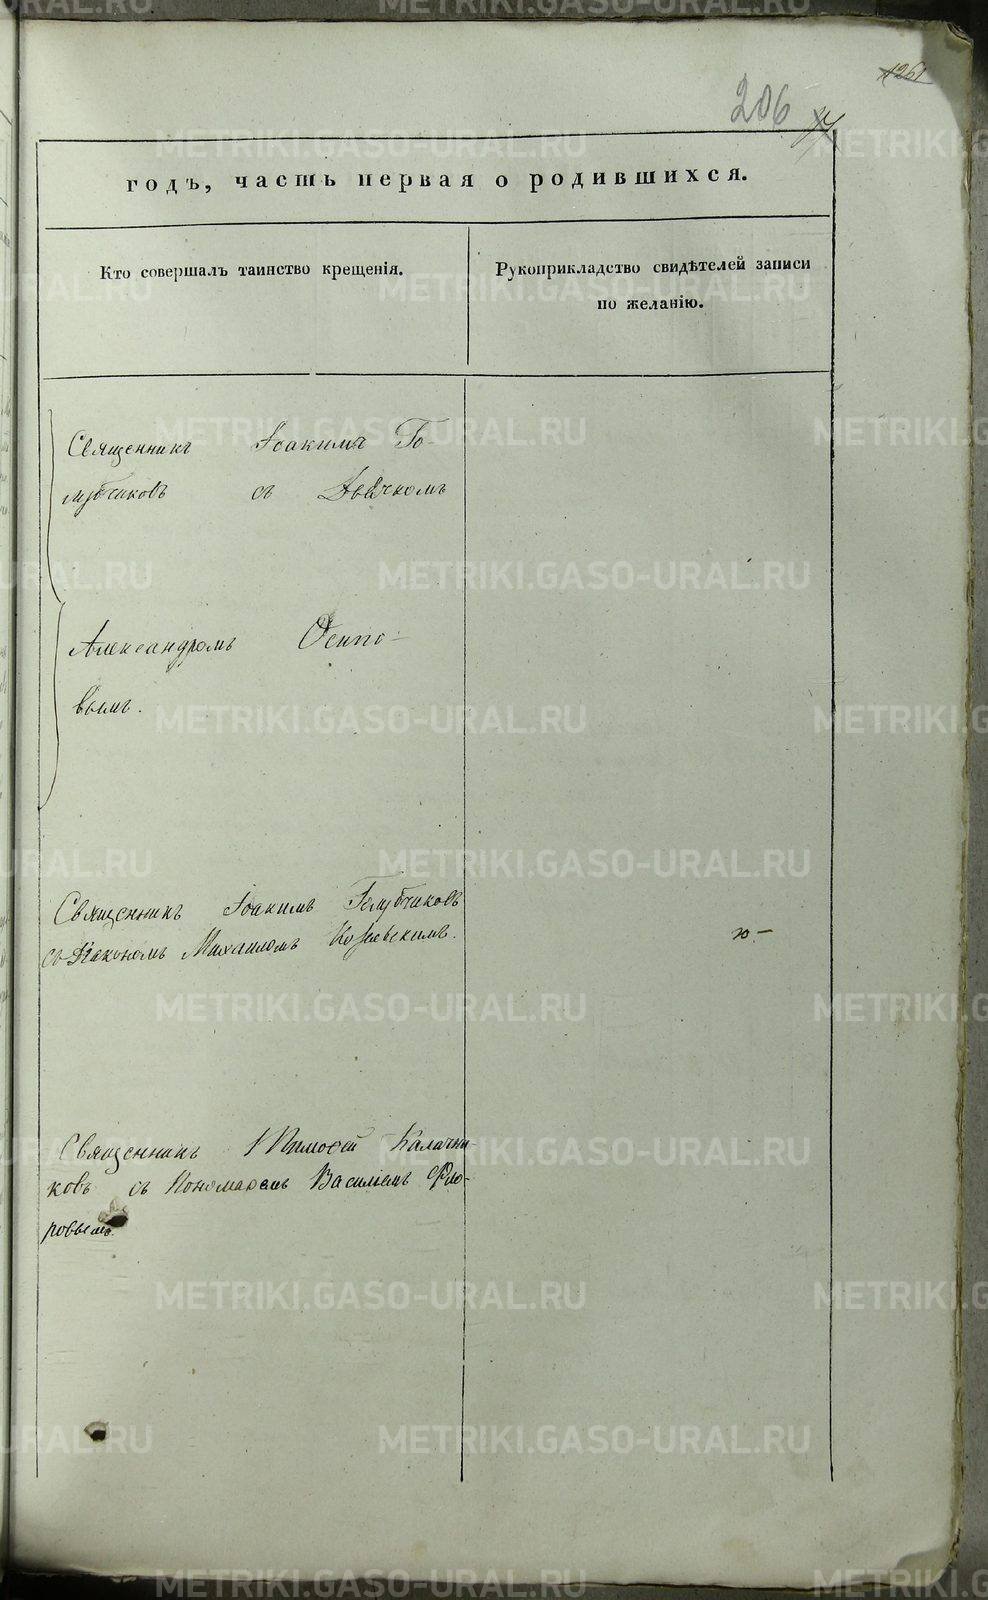 1261
206
годъ, часть первая о родившихся.
Кто совершалъ таинство крещенія.
Рукоприкладство свидѣтелей записи
по желанію.
Священникъ Іоакимъ Го
лубчиковъ съ Дьячкомъ
Александромъ Осипо-
вымъ.
Священникъ Іоакимъ Голубчиковъ
съ Діакономъ Михаиломъ Козьевскимъ.
ю.-
Священникъ Тимофей Калачни
ковъ съ Пономаремъ Василіемъ Фло-
ровымъ.
METRIKI.GASO-URAL.RU